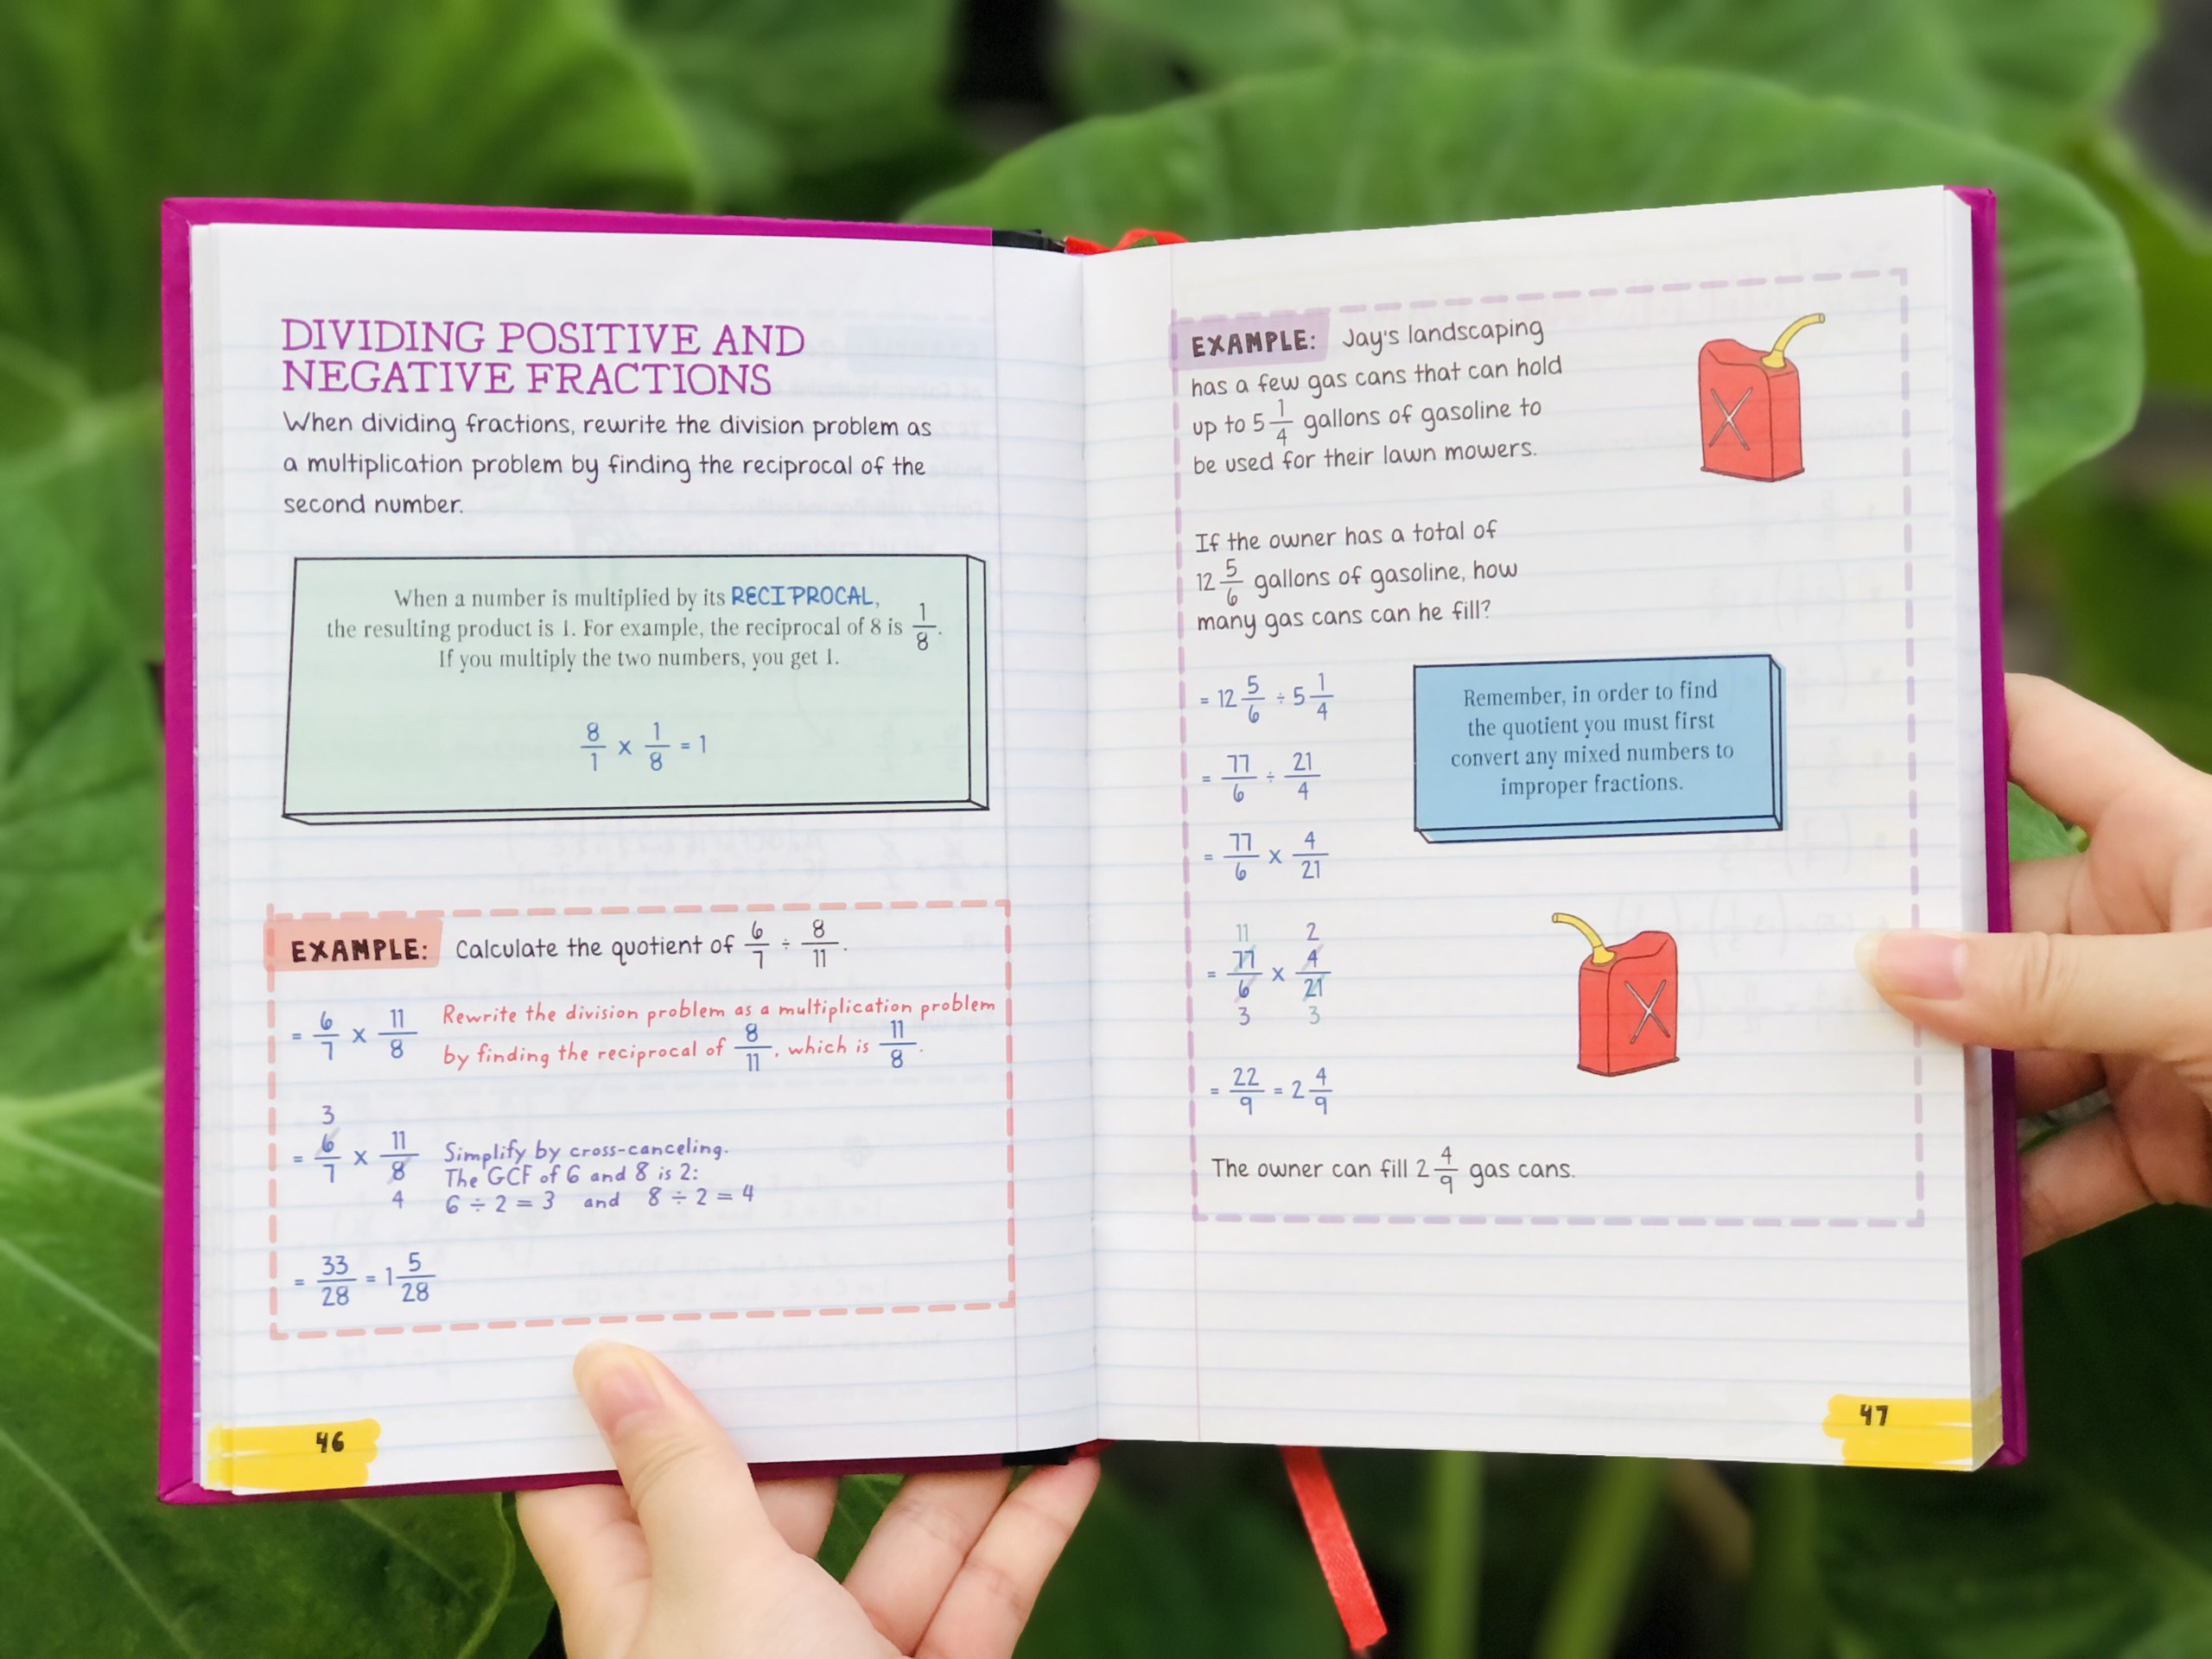 DIVIDING POSITIVE AND
NEGATIVE FRACTIONS
When dividing fractions, rewrite the division problem as
a multiplication problem by finding the reciprocal of the
second number.
When a number is multiplied by its RECIPROCAL,
the resulting product is 1. For example, the reciprocal of 8 is 1/8.
If you multiply the two numbers, you get 1.
8/1 x 1/8 = 1
EXAMPLE: Calculate the quotient of 6/7 ÷ 8/11.
= 6/7 x 11/8
Rewrite the division problem as a multiplication problem
by finding the reciprocal of 8/11, which is 11/8.
3
= 6/7 x 11/8
4
Simplify by cross-canceling.
The GCF of 6 and 8 is 2:
6 ÷ 2 = 3 and 8 ÷ 2 = 4
= 33/28 = 1 5/28
46
EXAMPLE: Jay's landscaping
has a few gas cans that can hold
up to 5 1/4 gallons of gasoline to
be used for their lawn mowers.
If the owner has a total of
12 5/6 gallons of gasoline, how
many gas cans can he fill?
= 12 5/6 ÷ 5 1/4
= 77/6 ÷ 21/4
= 77/6 x 4/21
11 2
= 77/6 x 4/21
3 3
= 22/9 = 2 4/9
Remember, in order to find
the quotient you must first
convert any mixed numbers to
improper fractions.
The owner can fill 2 4/9 gas cans.
47